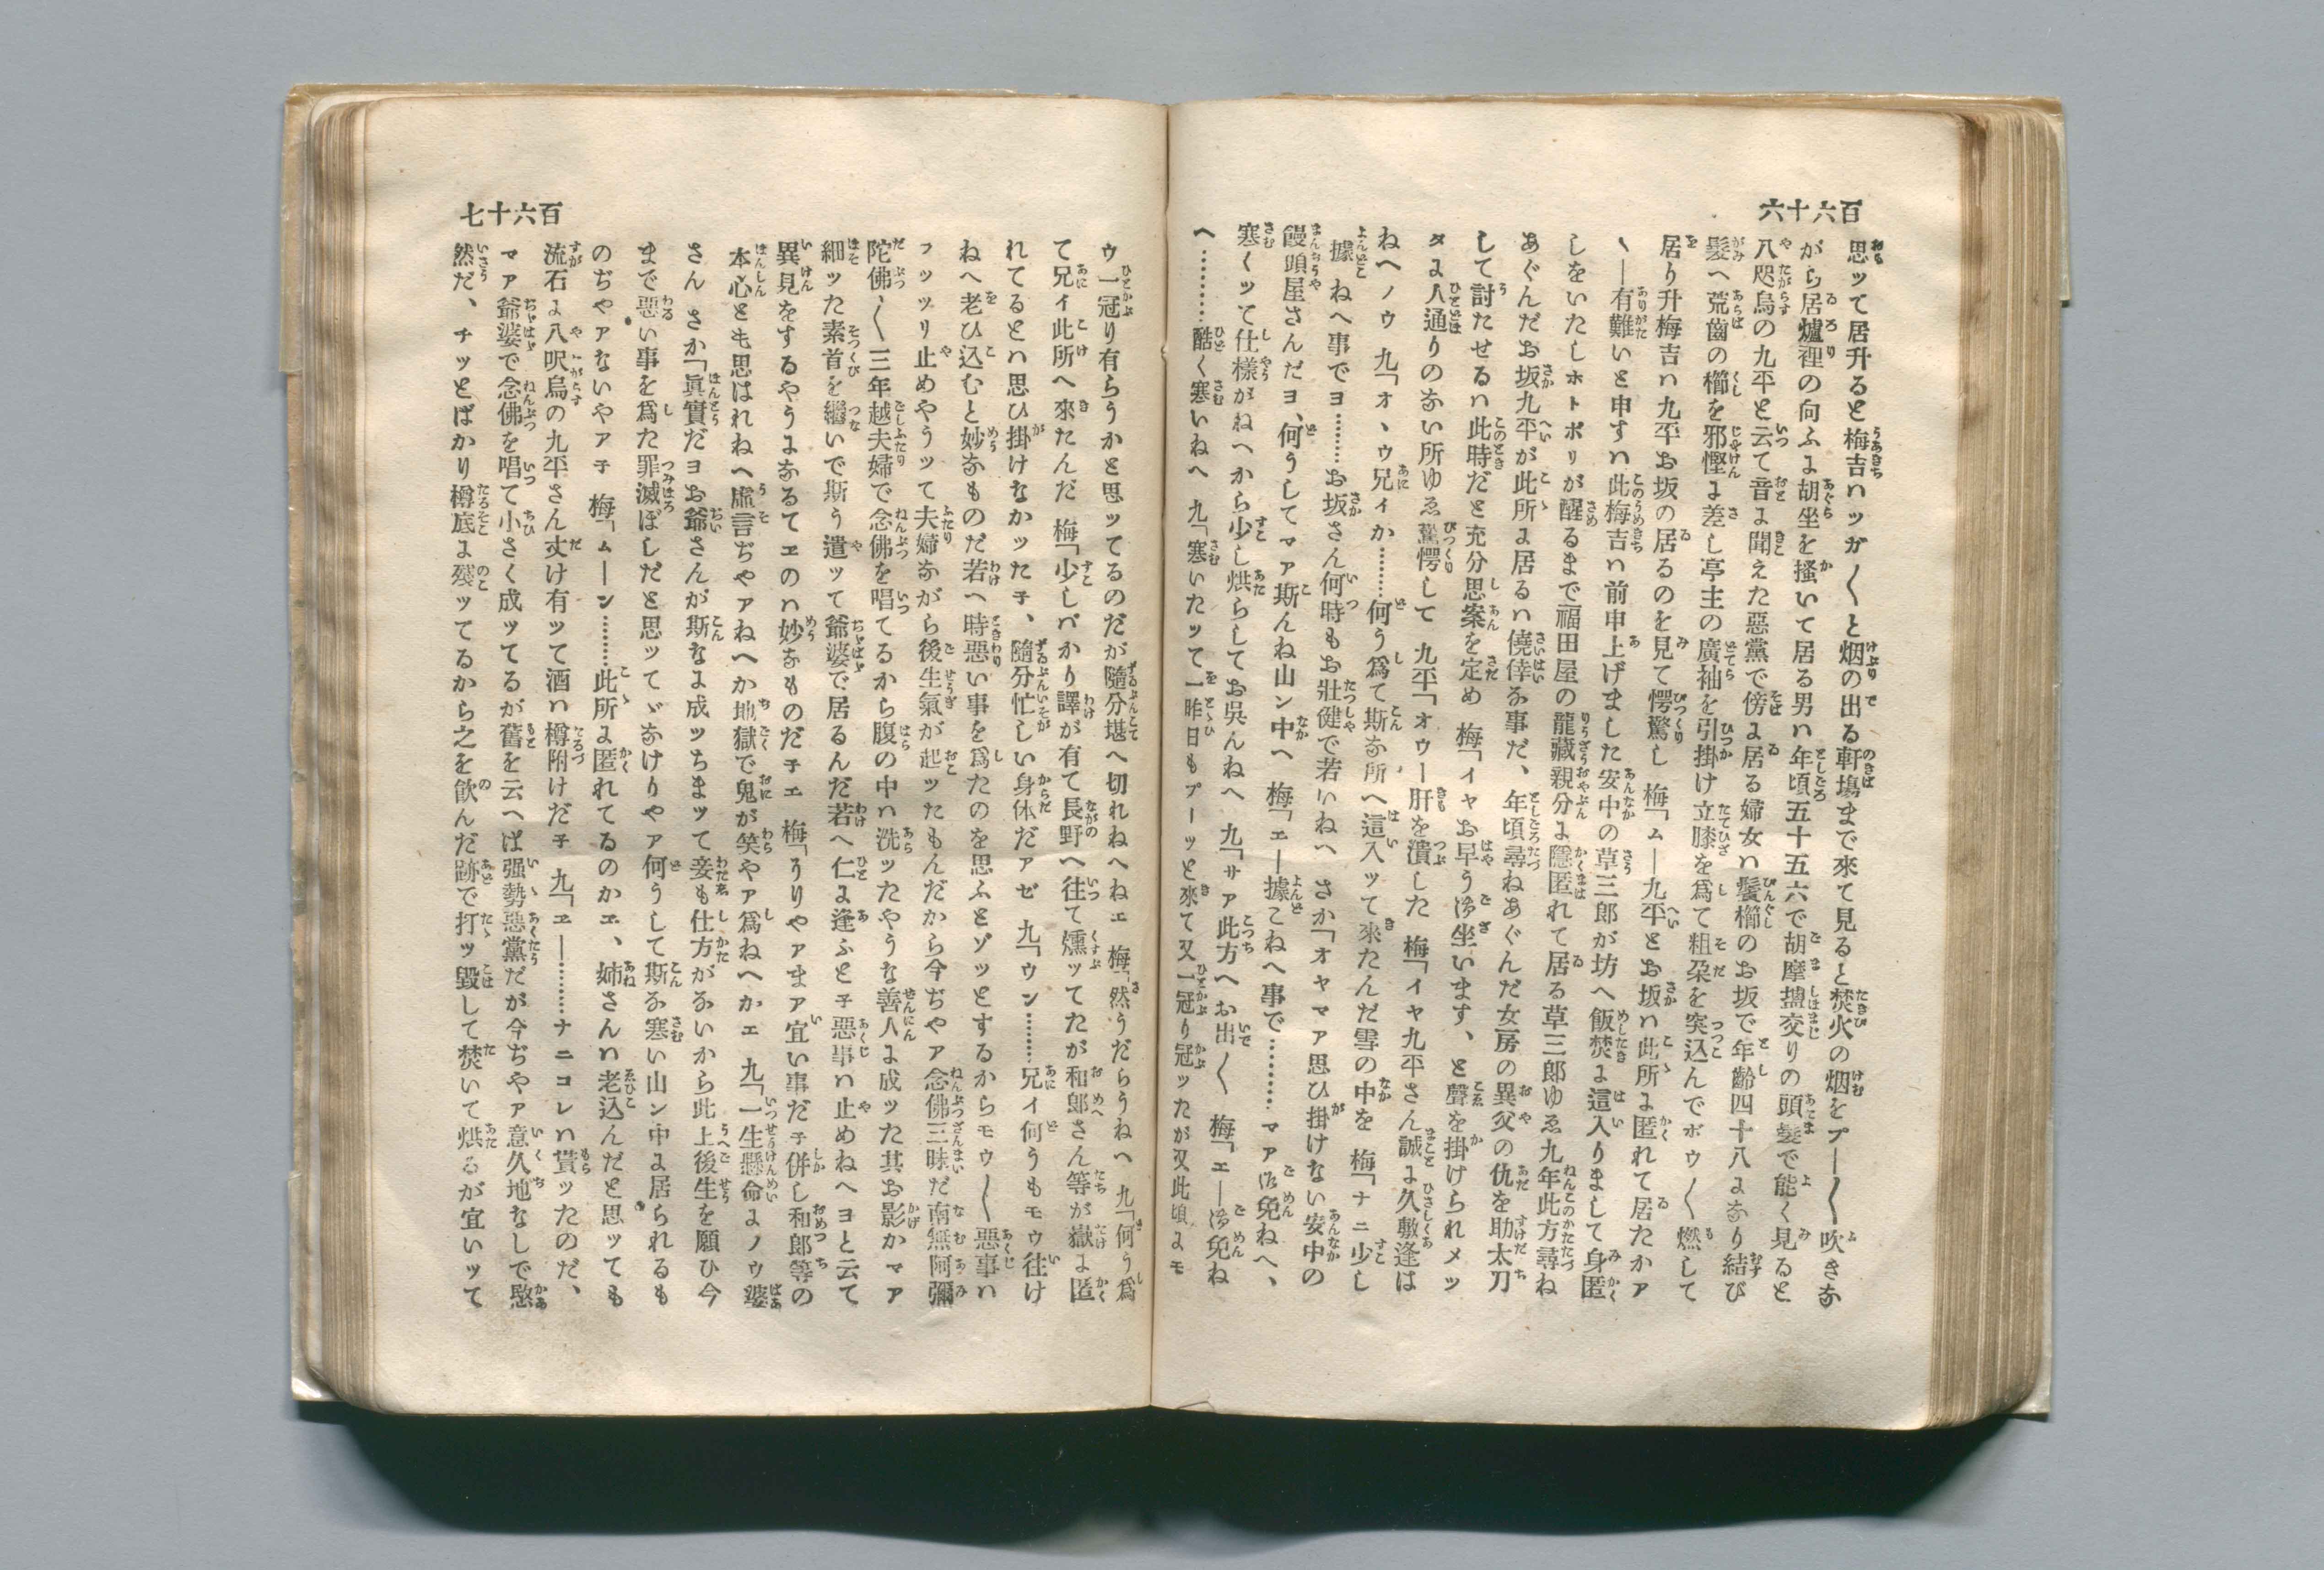 百六十六
思ッて居升ると梅吉ハッカ〱と烟の出る軒塲まで來て見ると焚火の烟をプー〱吹きな
がら居爐裡の向ふよ胡坐を搔いて居る男ハ年頃五十五六で胡摩盬交りの頭髮で能く見ると
八咫烏の九平と云て音よ聞えた惡黨で傍よ居る婦女ハ鬢櫛のお坂で年齡四十八よなり結び
髮へ荒齒の櫛を邪慳よ差し亭主の廣袖を引掛け立膝を爲て粗朶を突込んでボウ〱燃して
居り升梅吉ハ九平お坂の居るのを見て愕驚し 梅「ムー九平とお坂ハ此所よ匿れて居たかア
ヽー有難いと申すハ此梅吉ハ前申上げました安中の草三郎が坊へ飯焚よ這入りまして身匿
しをいたしホトボリが醒るまで福田屋の龍藏親分よ隱匿れて居る草三郎ゆゑ九年此方尋ね
あぐんだお坂九平が此所よ居るハ僥倖な事だ、年頃尋ねあぐんだ女房の異父の仇を助太刀
して討たせるハ此時だと充分思案を定め 梅「イヤお早う御坐います、と聲を掛けられメッ
タよ人通りのない所ゆゑ驚愕して 九平「オウー肝を潰した 梅「イヤ九平さん誠よ久敷逢は
ねへノウ 九「オヽウ兄ィか………何う爲て斯な所へ這入ッて來たんだ雪の中を 梅「ナニ少し
據ねへ事でヨ………お坂さん何時もお壯健で若いねへ さか「オヤマア思ひ掛けない安中の
饅頭屋さんだヨ、何うしてマア斯んね山ン中へ 梅「エー據ころねへ事で………マア御免ねへ、
寒くッて仕樣がねへから少し烘らしてお呉んねへ 九「サア此方へお出〱 梅「エー御免ね
へ………酷く寒いねへ 九「寒いたッて一昨日もプーッと來て又一冠り冠ッたが又此頃よモ
百六十七
ウ一冠り有らうかと思ッてるのだが隨分堪へ切れねへねエ 梅「然うだらうねへ 九「何う爲
て兄ィ此所へ來たんだ 梅「少しバかり譯が有て長野へ往て燻ッてたが和郎さん等が嶽よ匿
れてるとハ思ひ掛けなかッたチ、隨分忙しい身体だアゼ 九「ウン………兄イ何うもモウ往け
ねへ老ひ込むと妙なものだ若へ時惡い事を爲たのを思ふとゾッとするからモウ〱惡事ハ
フッツリ止めやうッて夫婦ながら後生氣が起ッたもんだから今ぢやア念佛三昧だ南無阿彌
陀佛〱三年越夫婦で念佛を唱てるから腹の中ハ洗ッたやうな善人よ成ッた其お影かマア
細ッた素首を繼いで斯う遣ッて爺婆で居るんだ若へ仁よ逢ふとチ惡事ハ止めねへヨと云て
異見をするやうよなるてエのハ妙なものだチエ 梅「うりやアまア宜い事だチ併し和郎等の
本心とも思はれねへ虛言ぢやアねへか地獄で鬼が笑やア爲ねへかエ 九「一生懸命よノウ婆
さん さか「眞實だヨお爺さんが斯なよ成ッちまッて妾も仕方がないから此上後生を願ひ今
まで惡い事を爲た罪滅ぼしだと思ッてゞなけりやア何うして斯な寒い山ン中よ居られるも
のぢやアないやアチ 梅「ムーン………此所よ匿れてるのかエ、姉さんハ老込んだと思ッても
流石よ八咫烏の九平さん丈け有ッて酒ハ樽附けだチ 九「エー………ナニコレハ貰ッたのだ、
マア爺婆で念佛を唱て小さく成ッてるが舊を云へば强勢惡黨だが今ぢやア意久地なしで愍
然だ、チッとばかり樽底よ殘ッてるから之を飮んだ跡で打ッ毀して焚いて烘るが宜いッて